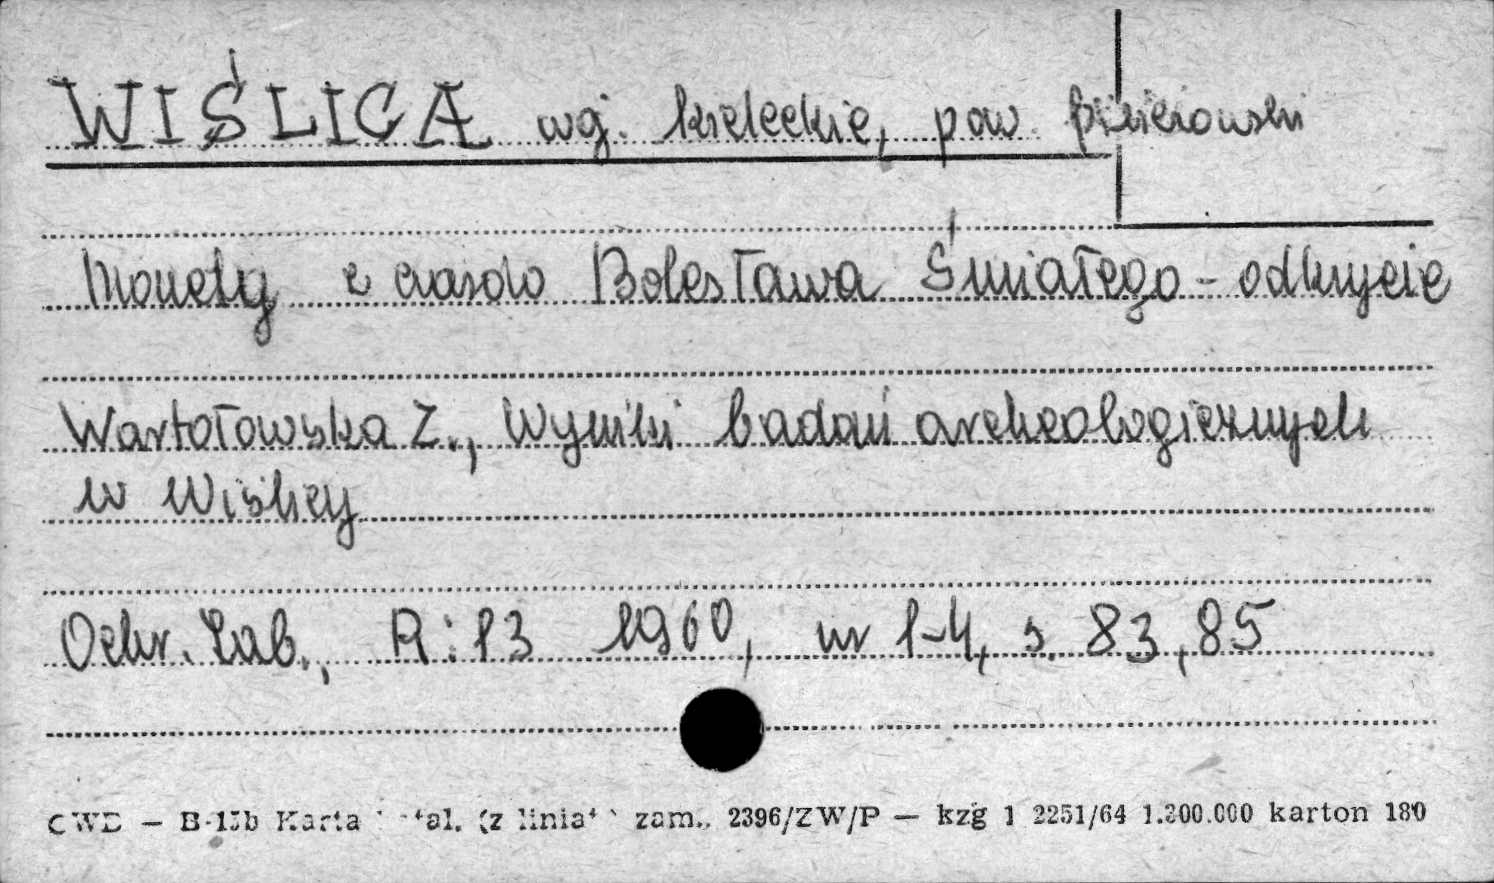 WIŚLICA woj. kieleckie, pow. pińczowski
Monety z czasów Bolesława Śmiałego - odkrycie
Wartołowska Z., Wyniki badań archeologicznych
w Wiślicy
Ochr. Zab., R: 13 1960, nr 1-4, s. 83, 85
CWD — B-13b Karta (z zam. 2396/ZW/P — kzg 1 2251/64 1.300.000 karton 180